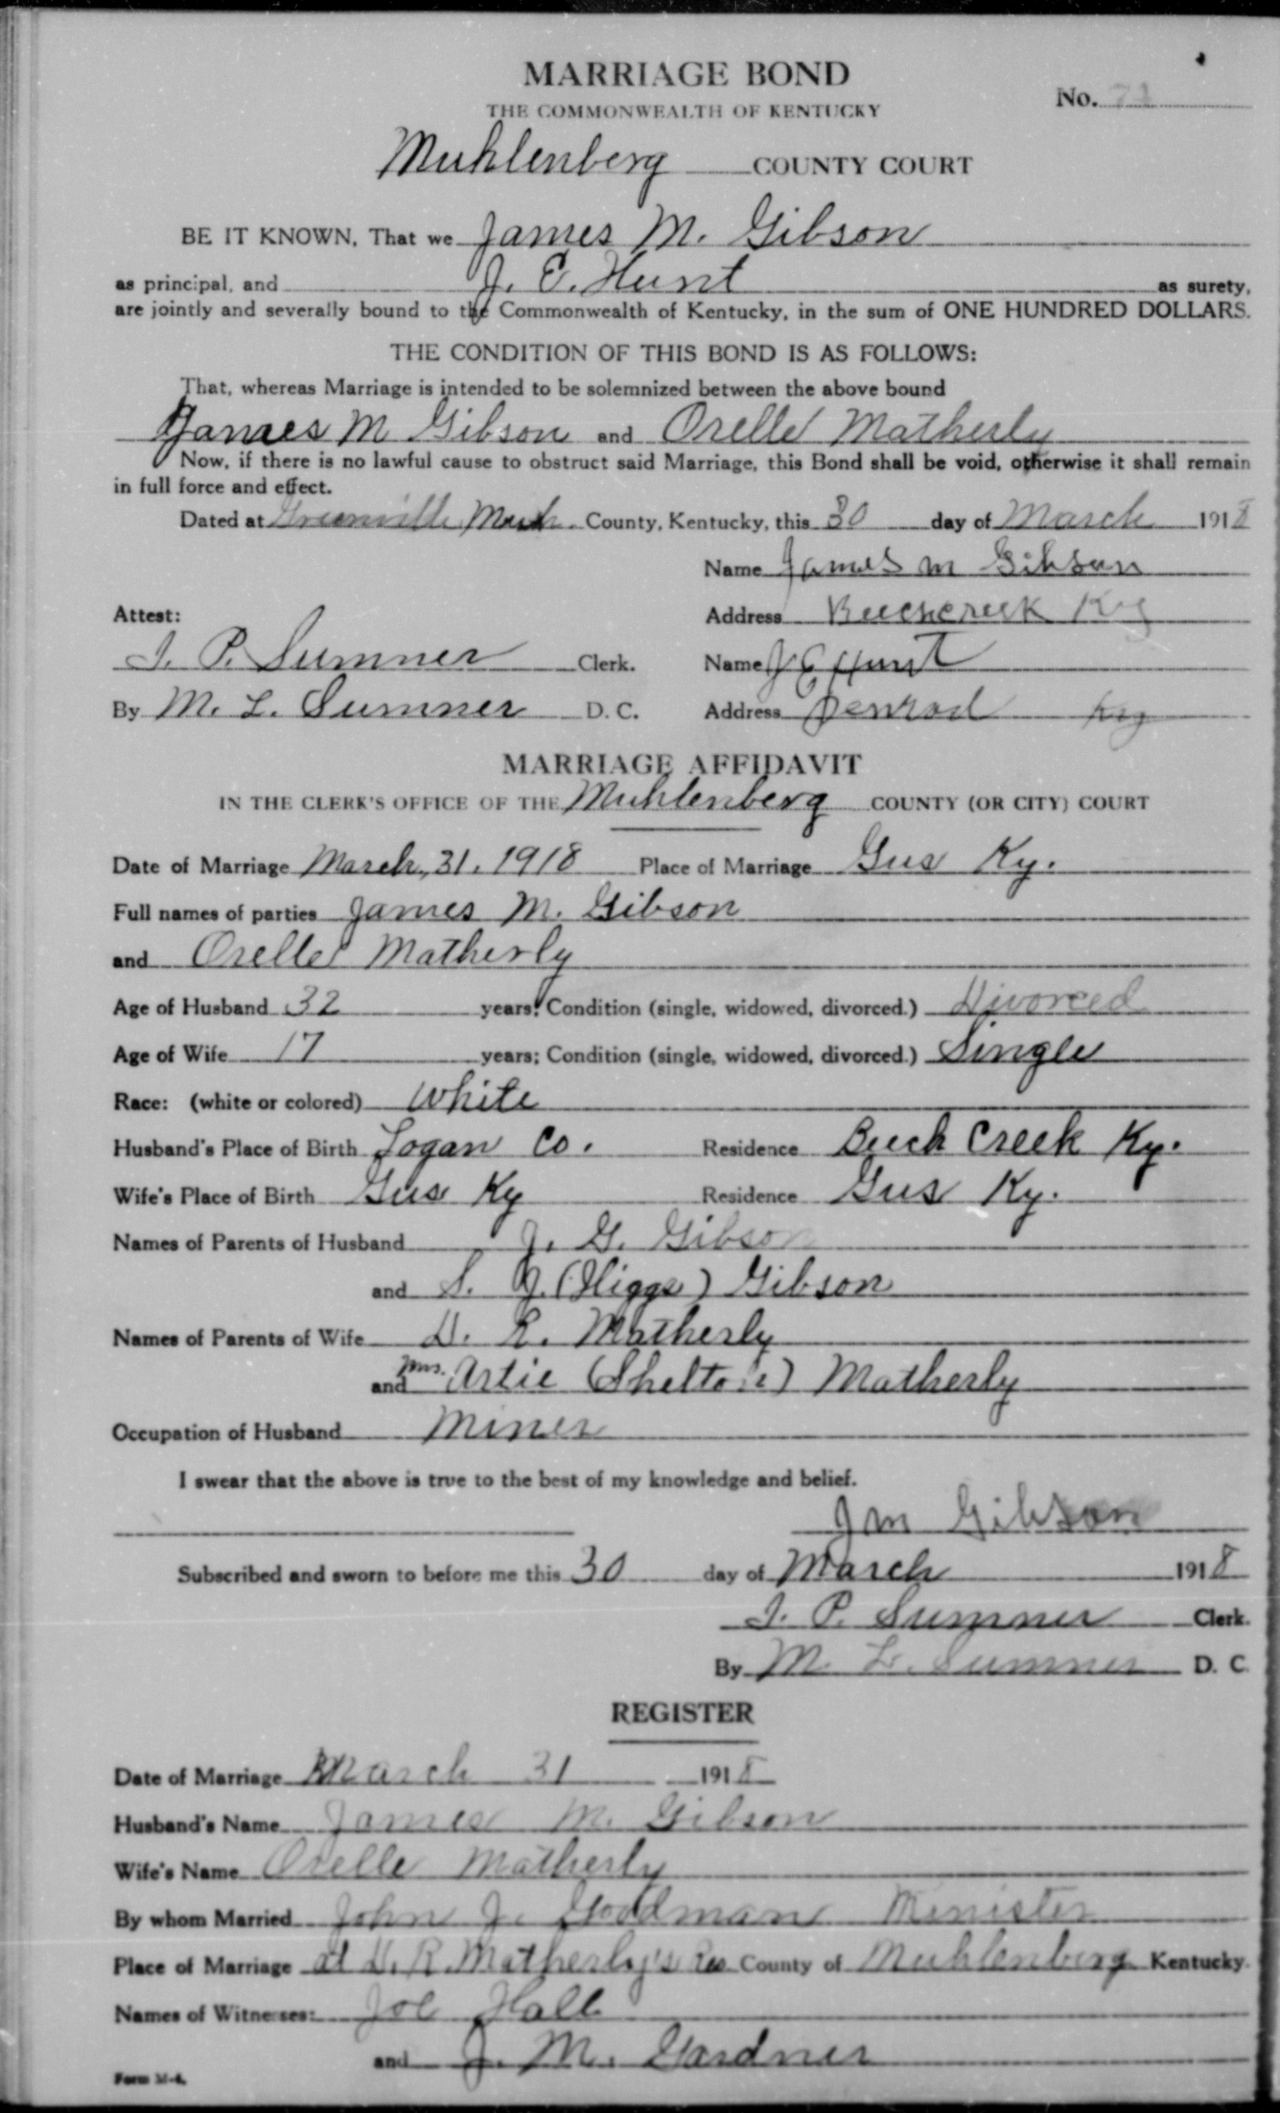 MARRIAGE BOND
No. 71
THE COMMONWEALTH OF KENTUCKY
Muhlenberg COUNTY COURT
BE IT KNOWN, That we James M. Gibson
as principal, and J. E. Hunt as surety,
are jointly and severally bound to the Commonwealth of Kentucky, in the sum of ONE HUNDRED DOLLARS.
THE CONDITION OF THIS BOND IS AS FOLLOWS:
That, whereas Marriage is intended to be solemnized between the above bound
James M Gibson and Orelle Matherly
Now, if there is no lawful cause to obstruct said Marriage, this Bond shall be void, otherwise it shall remain
in full force and effect.
Dated at Greenville Muh. County, Kentucky, this 30 day of March 1918
Name James M Gibson
Attest: Address Beechcreek Ky
I. P. Sumner Clerk. Name J E Hunt
By M. L. Sumner D. C. Address Penrod Ky
MARRIAGE AFFIDAVIT
IN THE CLERK'S OFFICE OF THE Muhlenberg COUNTY (OR CITY) COURT
Date of Marriage March, 31, 1918 Place of Marriage Gus Ky.
Full names of parties James M. Gibson
and Orelle Matherly
Age of Husband 32 years; Condition (single, widowed, divorced.) Divorced
Age of Wife 17 years; Condition (single, widowed, divorced.) Single
Race: (white or colored) White
Husband's Place of Birth Logan Co. Residence Beech Creek Ky.
Wife's Place of Birth Gus Ky Residence Gus Ky.
Names of Parents of Husband J. G. Gibson
and S. J. (Higgs) Gibson
Names of Parents of Wife D. R. Matherly
and Mrs. Artie (Shelton) Matherly
Occupation of Husband Miner
I swear that the above is true to the best of my knowledge and belief.
J M Gibson
Subscribed and sworn to before me this 30 day of March 1918
I. P. Sumner Clerk.
By M. L. Sumner D. C.
REGISTER
Date of Marriage March 31 1918
Husband's Name James M. Gibson
Wife's Name Orelle Matherly
By whom Married John J. Goodman Minister
Place of Marriage at D. R. Matherly's Res County of Muhlenberg Kentucky.
Names of Witnesses: Joe Hall
and J. M. Gardner
Form M-4.